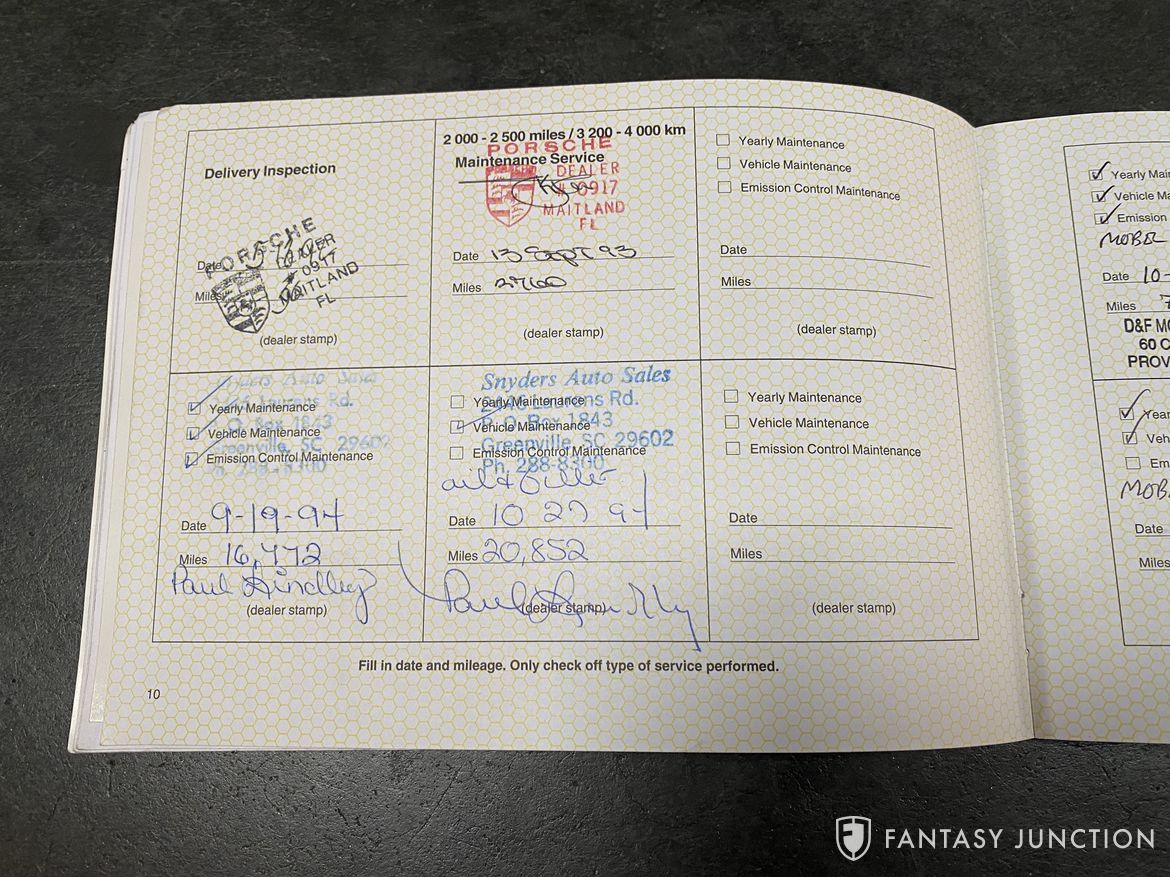 Delivery Inspection
PORSCHE
DEALER
Date
0917
MAITLAND
FL
Miles
(dealer stamp)
2 000 - 2 500 miles / 3 200 - 4 000 km
Maintenance Service
PORSCHE
DEALER
# 0917
MAITLAND
FL
Date 13 Sept 93
Miles 2760
(dealer stamp)
Yearly Maintenance
Vehicle Maintenance
Emission Control Maintenance
Date
Miles
(dealer stamp)
Snyders Auto Sales
Laurens Rd.
Yearly Maintenance
P.O. Box 1843
Vehicle Maintenance
Greenville, SC 29602
Emission Control Maintenance
288-8300
Date 9-19-94
Miles 16,772
Paul Lindley
(dealer stamp)
Snyders Auto Sales
Laurens Rd.
Yearly Maintenance
P.O. Box 1843
Vehicle Maintenance
Greenville, SC 29602
Emission Control Maintenance
Ph. 288-8300
oil & filter
Date 10 27 94
Miles 20,852
(dealer stamp)
Yearly Maintenance
Vehicle Maintenance
Emission Control Maintenance
Date
Miles
(dealer stamp)
Fill in date and mileage. Only check off type of service performed.
10
Yearly Mai
Vehicle Ma
Emission
MOBIL
Date 10-
Miles 7
D&F MO
60 C
PROV
Year
Vehicle
Em
MOBI
Date
Miles
FANTASY JUNCTION